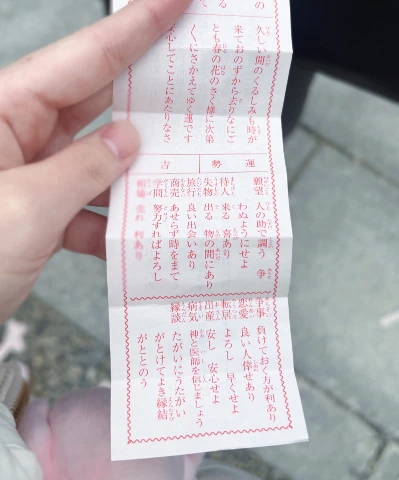 久しい間のくるしみも時が
来ておのずから去りなにご
とも春の花のさく様に次第
〱にさかえてゆく運です
心してことにあたりなさ
運勢 吉
願望 人の助で調う 争
わぬようにせよ
待人 来る 喜あり
失物 出る 物の間にあり
旅行 良い出会いあり
商売 あせらず時をまて
学問 努力すればよろし
相場 売れ 利あり
争事 負けておく方が利あり
恋愛 良い人 倖せあり
転居 よろし 早くせよ
出産 安し 安心せよ
病気 神と医師を信じましょう
縁談 たがいにうたがい
がとけてよき縁結
がととのう